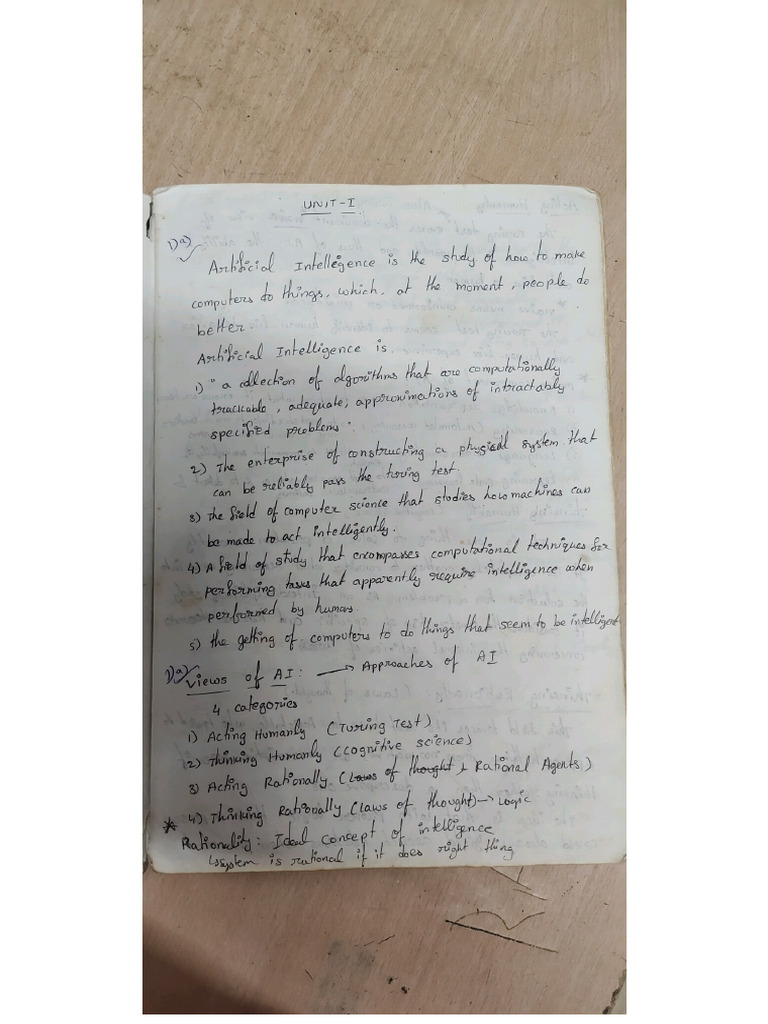 UNIT-I
1)a)
Artificial Intellegence is the study of how to make
computers do things, which, at the moment, people do
better.
Artificial Intelligence is.
1) " a collection of algorithms that are computationally
trackable, adequate, approximations of intractably
specified problems".
2) The enterprise of constructing a physical system that
can be reliably pass the turing test.
3) The field of computer science that studies how machines can
be made to act intelligently.
4) A field of study that encompasses computational techniques for
performing tasks that apparently require intelligence when
performed by humans.
5) the getting of computers to do things that seem to be intelligent
1)a) Views of AI: → Approaches of AI
4 categories
1) Acting Humanly (Turing Test)
2) Thinking Humanly (Cognitive science)
3) Acting Rationally (Laws of thought & Rational Agents.)
* 4) Thinking Rationally (laws of thought) → Logic
Rationality: Ideal concept of intelligence
↳ system is rational if it does right thing